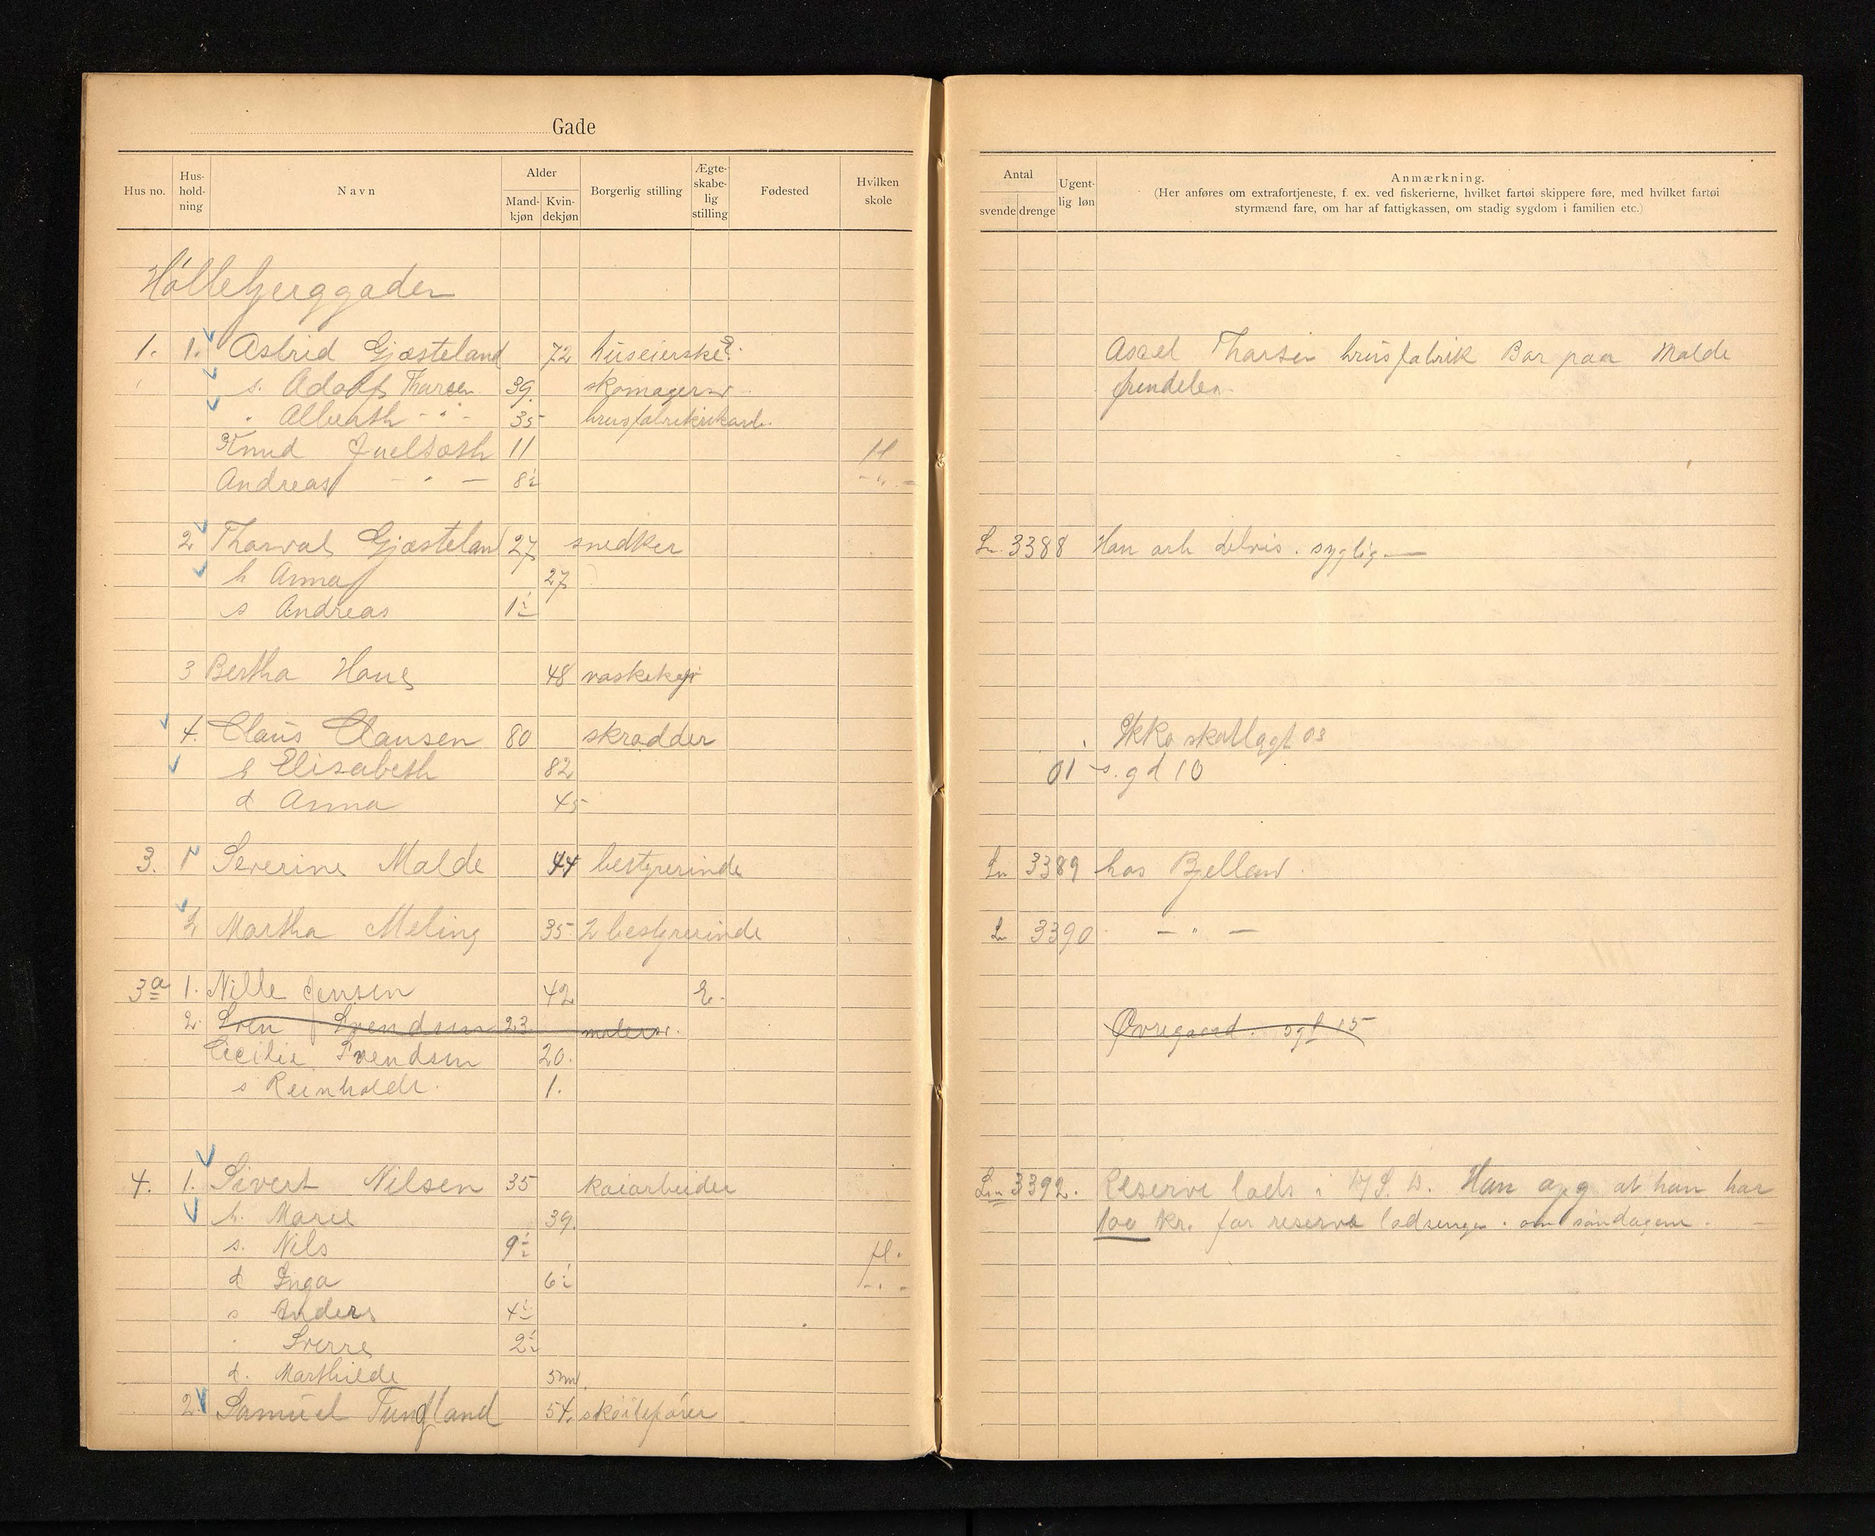 Gade
Hus no. Hus-hold-ning Navn Alder Mand-kjøn Kvin-dekjøn Borgerlig stilling Ægte-skabe-lig stilling Fødested Hvilken skole
Antal svende drenge Ugent-lig løn Anmærkning.
(Her anføres om extrafortjeneste, f. ex. ved fiskerierne, hvilket fartøi skippere føre, med hvilket fartøi
styrmænd fare, om har af fattigkassen, om stadig sygdom i familien etc.)
Høllebjerggaden
1. 1. Astrid Gjæsteland 72 huseierske E. Axel Tharsen brusfabrik Bor paa Malde
s. Adolf Tharsen 39. skomagersv.
" Alberth - " - 35 brusfabrikarb.
Knud Juelsoth 11 H
Andreas - " - 8½ - " -
2 Thorval Gjæsteland 27 snedker Ln. 3388 Han arb delvis. syglig
h Anna 27
s Andreas 1½
3 Bertha Hove 48 vaskekj
4. Claus Clausen 80 skrædder Ikke skatlagt 03
h Elisabeth 82 01 s. g d 10
d Anna 45
3. 1 Severine Malde 44 bestyrerinde Ln 3389 hos Bjelland.
2 Martha Meling 35 2 bestyrerinde Ln 3390 - " -
3a 1. Nille Jensen 42 E.
2. Sven Svendsen 23 malersv. Øvregaard.
Cecilie Svendsen 20.
s Reinholdt. 1.
4. 1. Sivert Nilsen 35 kaiarbeider Ln 3392. Reserve lods i Han opg at han har
h. Marie 39. 100 kr. for reserve lodsenge. om søndagene.
s. Nils 9½ H.
d Inga 6½ - " -
s Anders 4½
" Sverre 2½
d. Marthilde 5 md.
2 Samuel Tungland 54. skøitefører